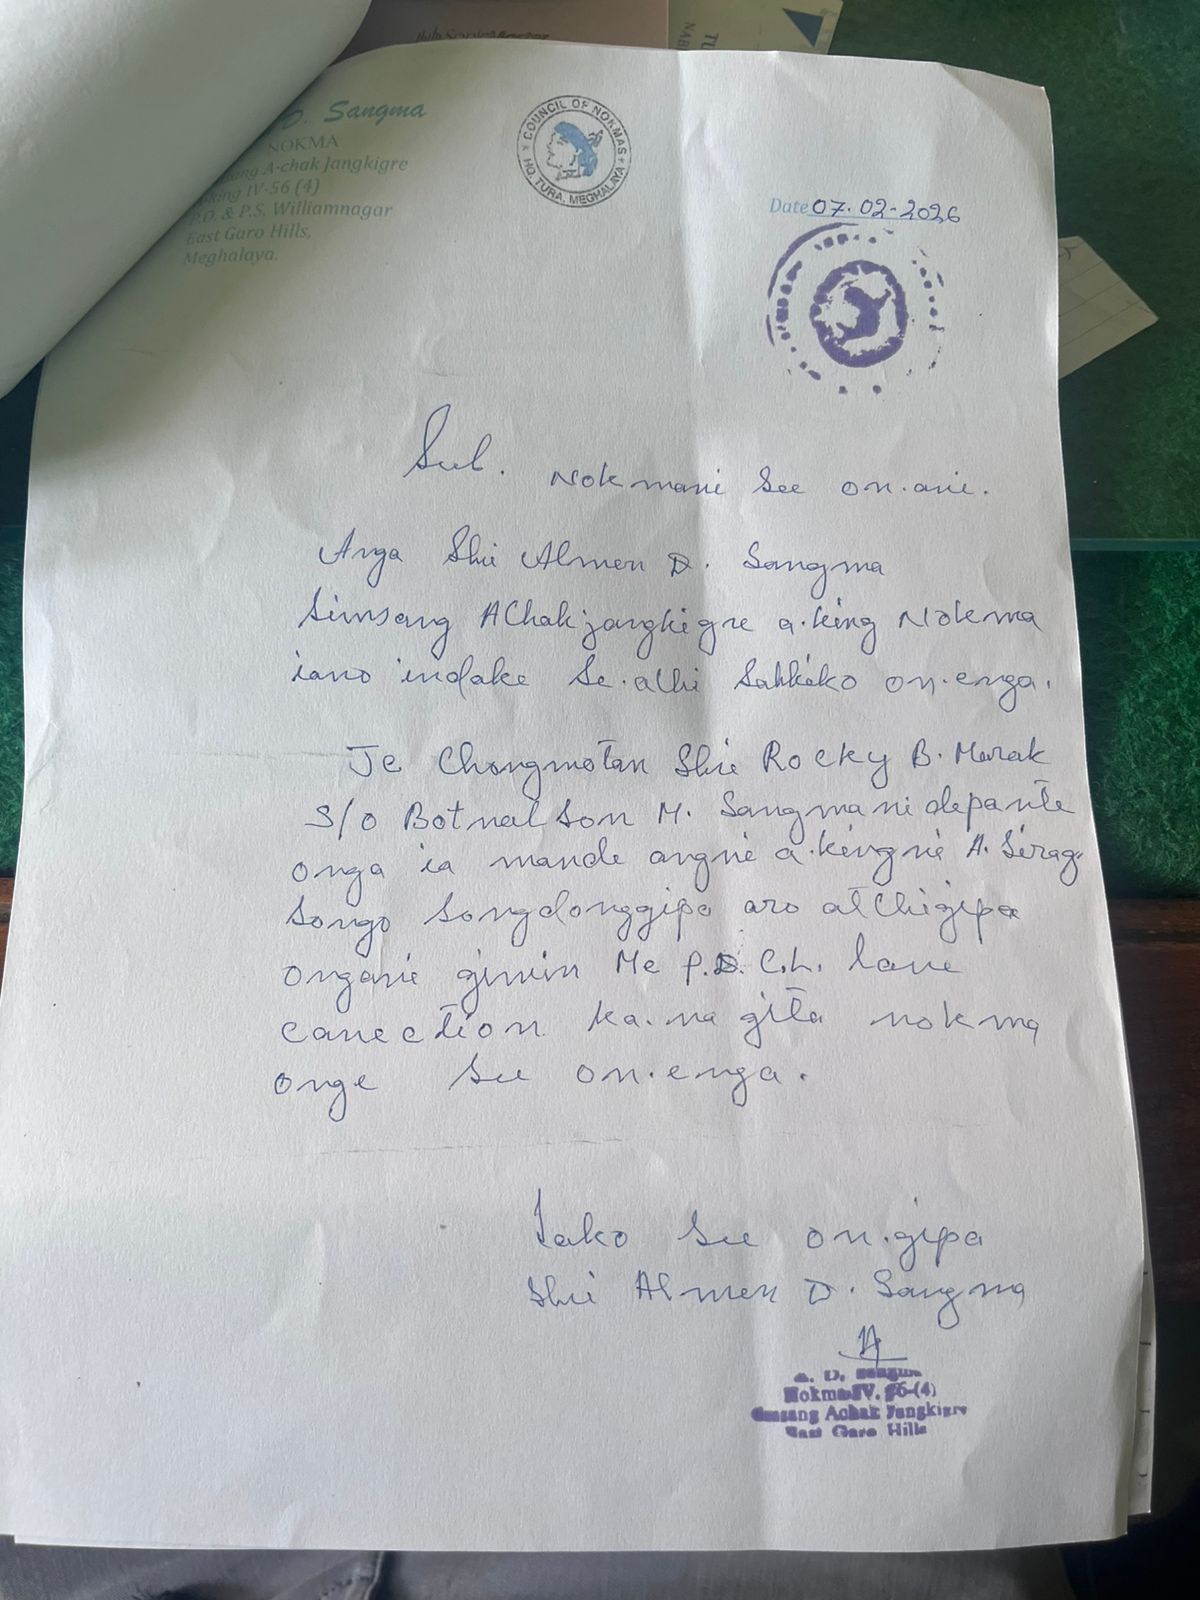 D. Sangma
NOKMA
A·chak Jangkigre
IV-56 (4)
P.O. & P.S. Williamnagar
East Garo Hills,
Meghalaya.
COUNCIL OF NOKMAS
HQ. TURA, MEGHALAYA
Date 07.02-2026
Sub. Nokmani See on.ani.
Anga Shri Almen D. Sangma
Simsang AChakjangkigre a.king Nokma
iano indake Se.athi Sakkiko on.enga.
Je Chongmotan Shri Rocky B. Marak
S/o Botnelson M. Sangma ni depante
onga ia mande angni a.kingni A. Sirag
Songo Songdonggipa aro atchigipa
ongani gimin Me P.D. C.L. lane
canection ka.na gita nokma
onge See on.enga.
Iako See on.gipa
Shri Almen D. Sangma
A. D. Sangma
Nokma IV. 56-(4)
Simsang Achak Jangkigre
East Garo Hills